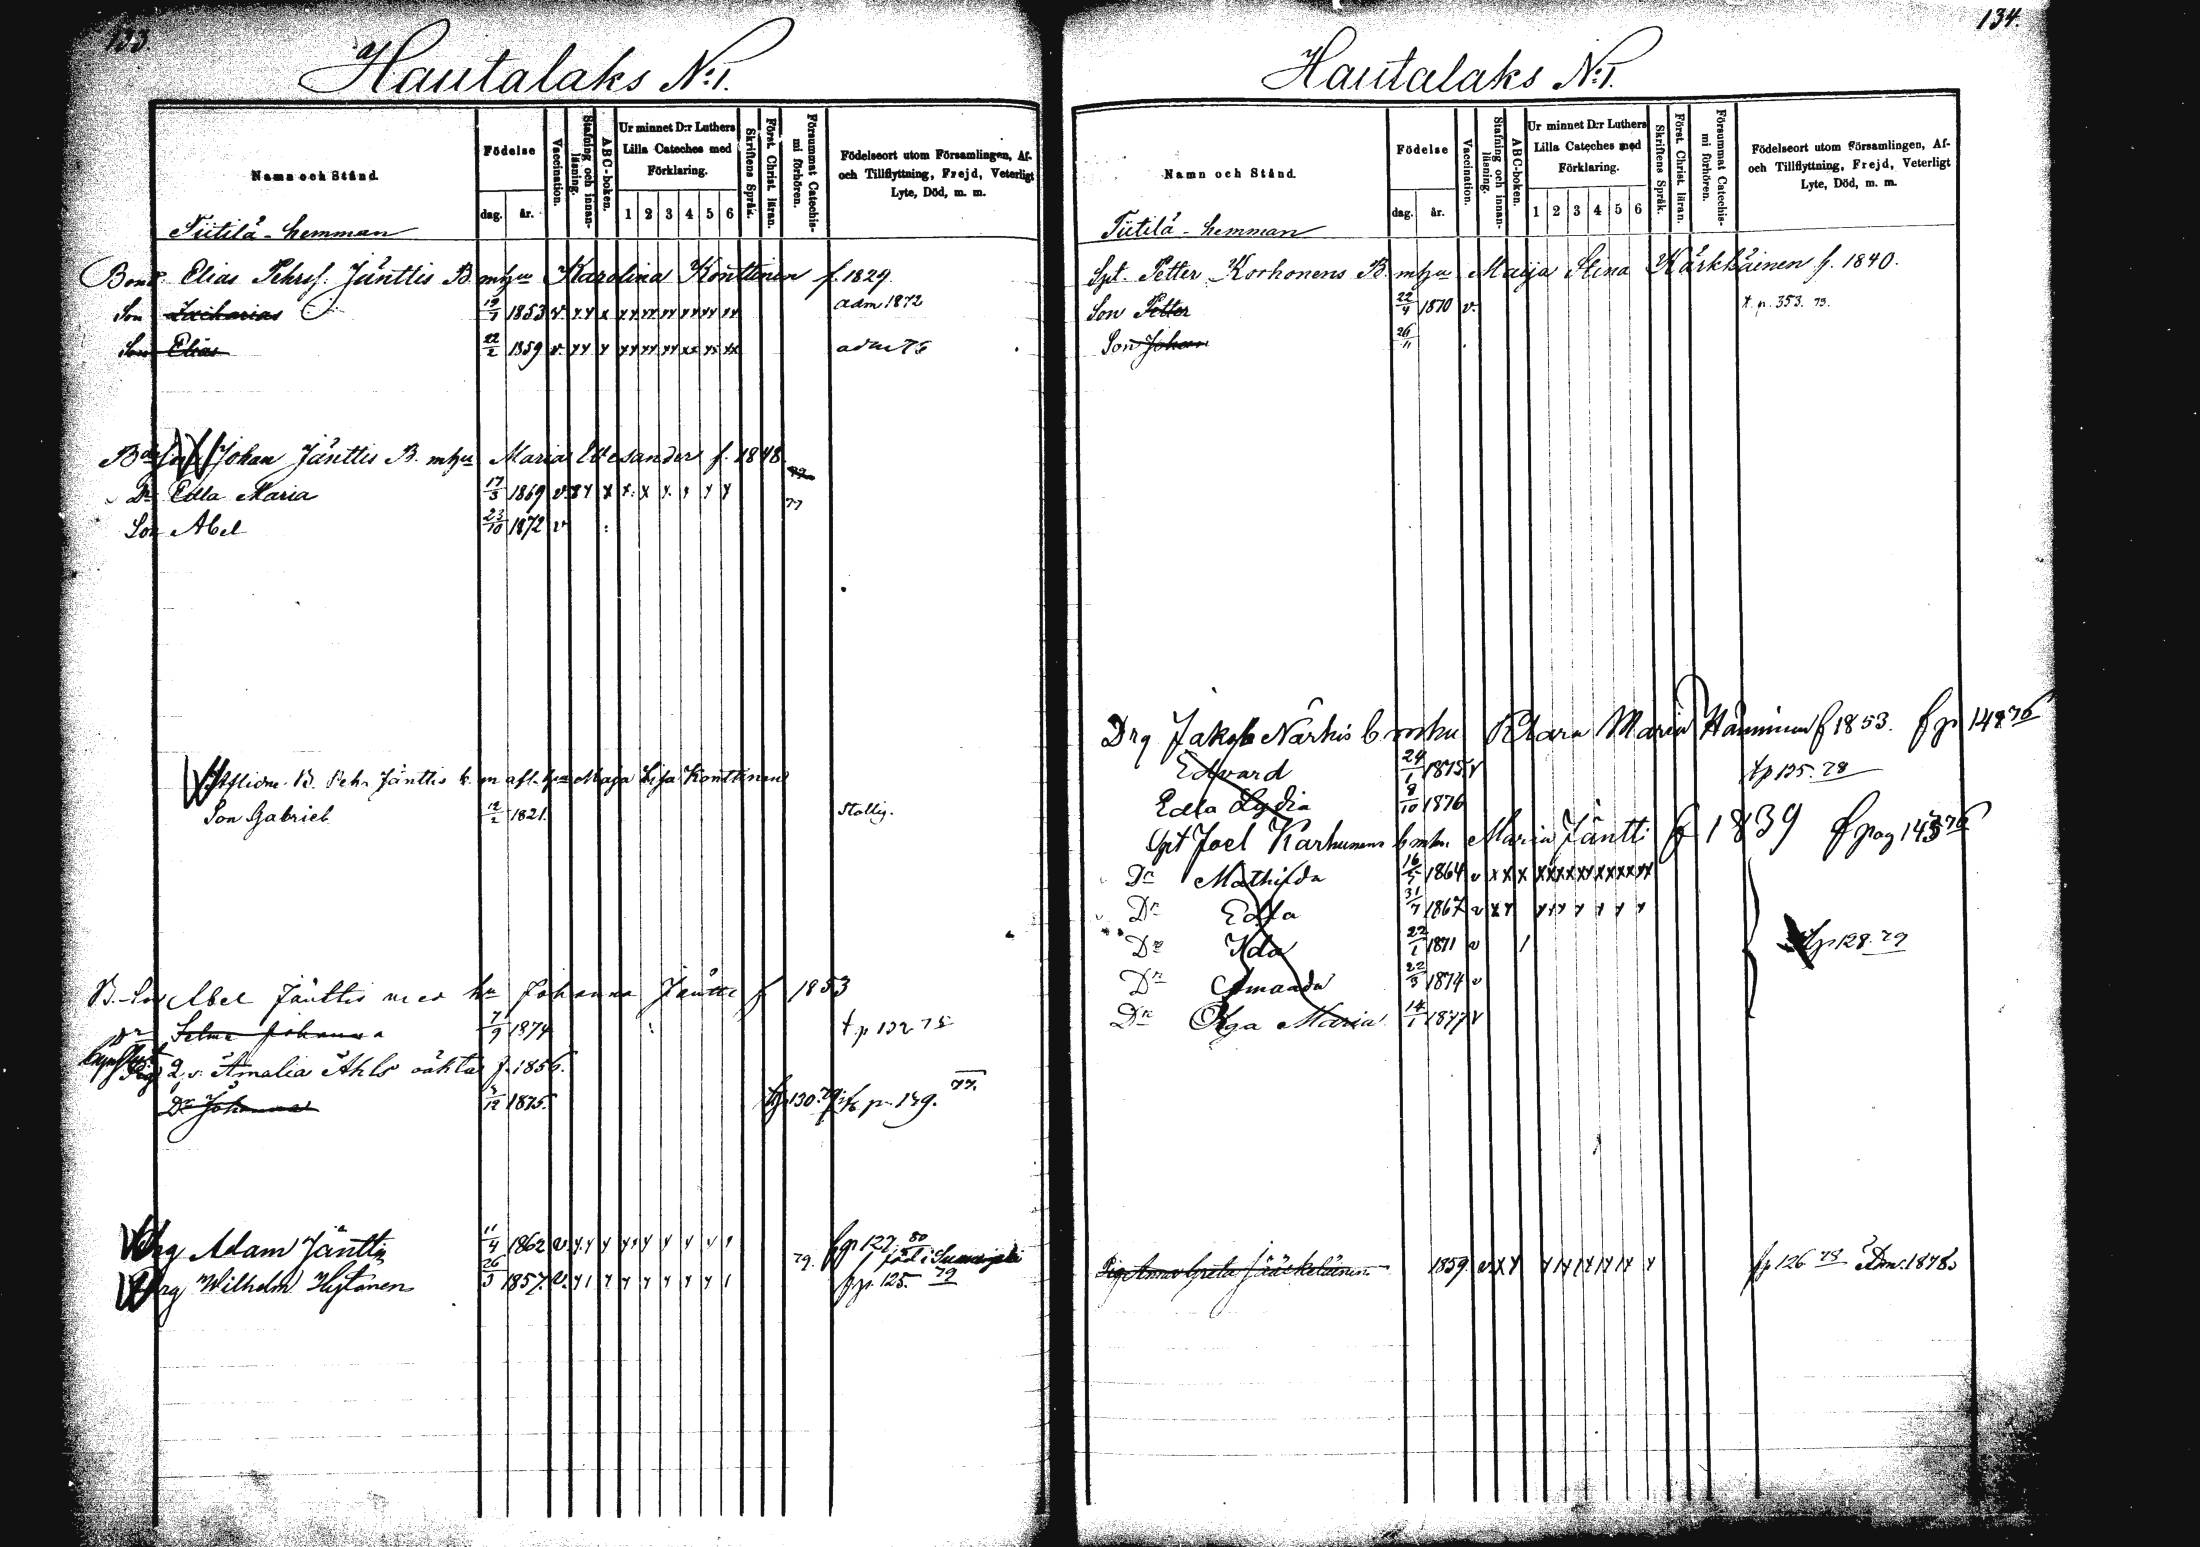 133.
Hautalaks N:1.
Namn och Stånd.
Födelse
dag.
år.
Vaccination.
Stafning och innan-läsning.
ABC-boken.
Ur minnet D:r Luthers Lilla Cateches med Förklaring.
1 2 3 4 5 6
Skriftens Språk.
Först. Christ. läran.
Försummat Catechis-mi förhören.
Födelseort utom Församlingen, Af- och Tillflyttning, Frejd, Veterligt Lyte, Död, m. m.
Tiitilä - hemman
Bond. Elias Pehrss. Jänttis B. mhu Karolina Konttinen f. 1829.
Son Zacharias 19/7 1853 v. adm 1872
Son Elias 22/2 1859 v. adm 75
Johan Jänttis B. mhu Maria f. 1848.
Dr Edla Maria 17/3 1869 v. 77
Son Abel 23/10 1872 v
B. Pehr Jänttis Maja Lisa Konttinen
Son Gabriel 12/2 1821.
B.-Son Abel Jänttis med hu Johanna Jäntti f 1853
Dr Selma Johanna 7/9 1874 t p 132 75
Amalia f. 1856.
Dr Johanna 12 1875. 130. 79 p. 139. 77.
Drg Adam Jäntti 11/4 1862 v. fr p 127 80
Drg Wilhelm Hytönen 26/3 1857. v. 79. fr p. 125. 79
134.
Hautalaks N:1.
Namn och Stånd.
Födelse
dag.
år.
Vaccination.
Stafning och innan-läsning.
ABC-boken.
Ur minnet D:r Luthers Lilla Cateches med Förklaring.
1 2 3 4 5 6
Skriftens Språk.
Först. Christ. läran.
Försummat Catechis-mi förhören.
Födelseort utom Församlingen, Af- och Tillflyttning, Frejd, Veterligt Lyte, Död, m. m.
Tiitilä - hemman
Spt. Petter Korhonens B. mhu Maija Stina Kärkkäinen f. 1840.
Son Petter 22/4 1870 v. t. p. 353. 73.
Son Johan 26/11
Drg Jakob Närhis b mhu Klara Maria Hänninen f 1853. f p 148 76
Edvard 24/1 1875 v t p 135. 78
Edla Lydia 8/10 1876
Spt Joel Karhunens b mhu Maria Jäntti f 1839 f pag 143 76
Dr Mathilda 16/5 1864 v
Dr Edla 31/7 1867 v
Dr Ida 22/1 1871 v t p 128. 79
Dr Amanda 22/3 1874 v
Dr Olga Maria 14/1 1877 v
Pig Anna Greta Jääskeläinen 1859 v. fr p 126 78 Adm. 1878.